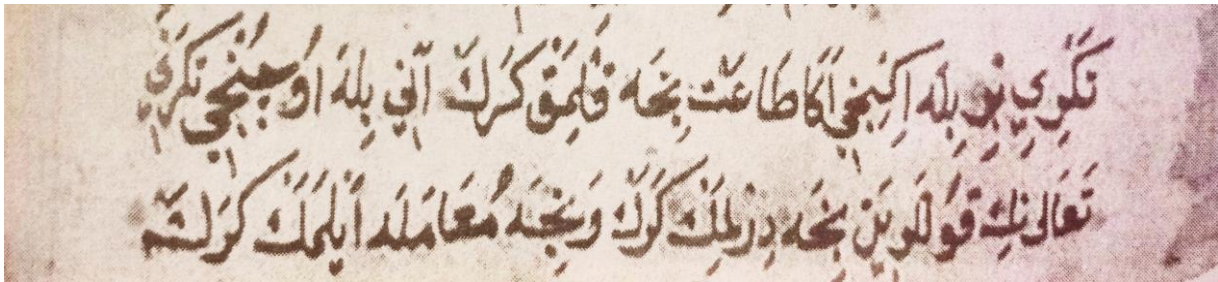 تَكْرِيِ نِيِ بِلَه اِكِنْجِي اَكَا طَاعَتْ نِجَه قِلْمَقْ كَرَكْ آنِي بِلَه اُوچُنْجِي تَكْرِي
تَعَالَى نِكْ قُولْلَرِيلَنْ نِجَه دِرِلْمَكْ كَرَكْ وَنِجَه مُعَامَلَه اَيْلَمَكْ